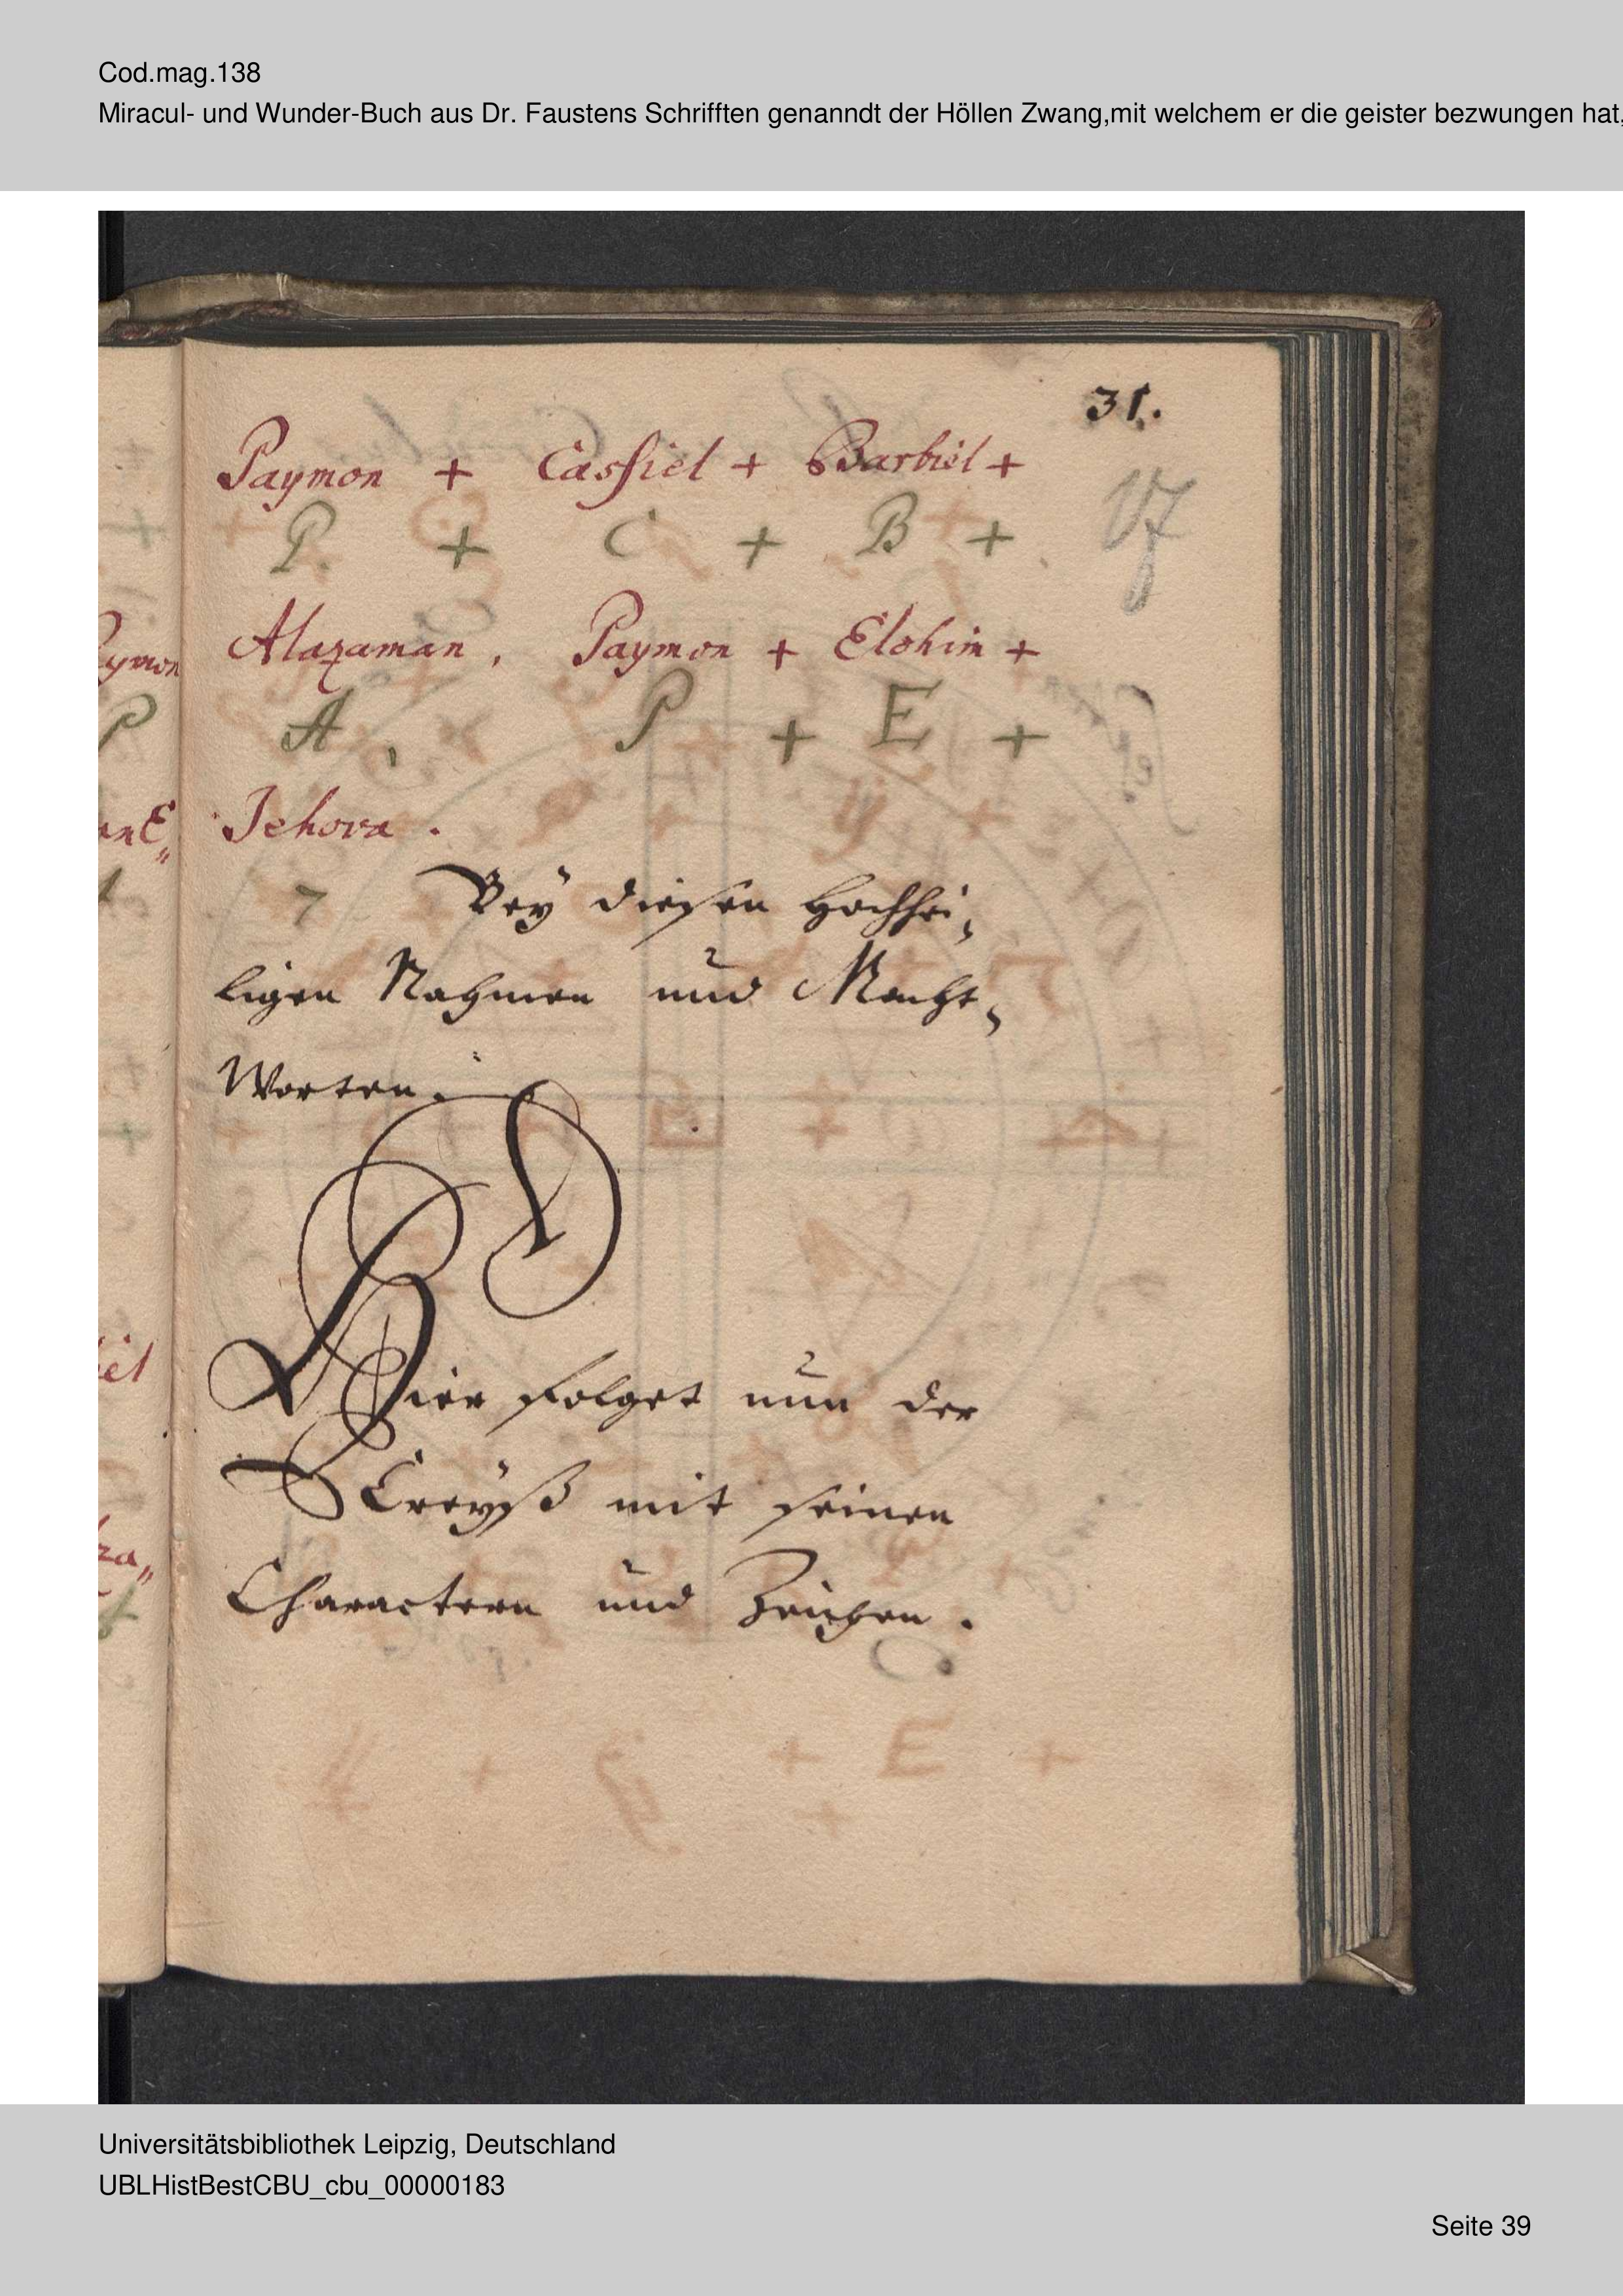 Cod.mag.138
Miracul- und Wunder-Buch aus Dr. Faustens Schrifften genanndt der Höllen Zwang,mit welchem er die geister bezwungen hat,
31.
Paymon + Cassiel + Barbiel +
P. + C + B +
Alazaman, Paymon + Elohim +
A, P + E +
Jehova.
7 Bey diesen Hochhei,
ligen Nahmen und Macht,
Worten.
Hier folget nun der
Creÿß mit seinen
Charactern und Zeichen.
Universitätsbibliothek Leipzig, Deutschland
UBLHistBestCBU_cbu_00000183
Seite 39